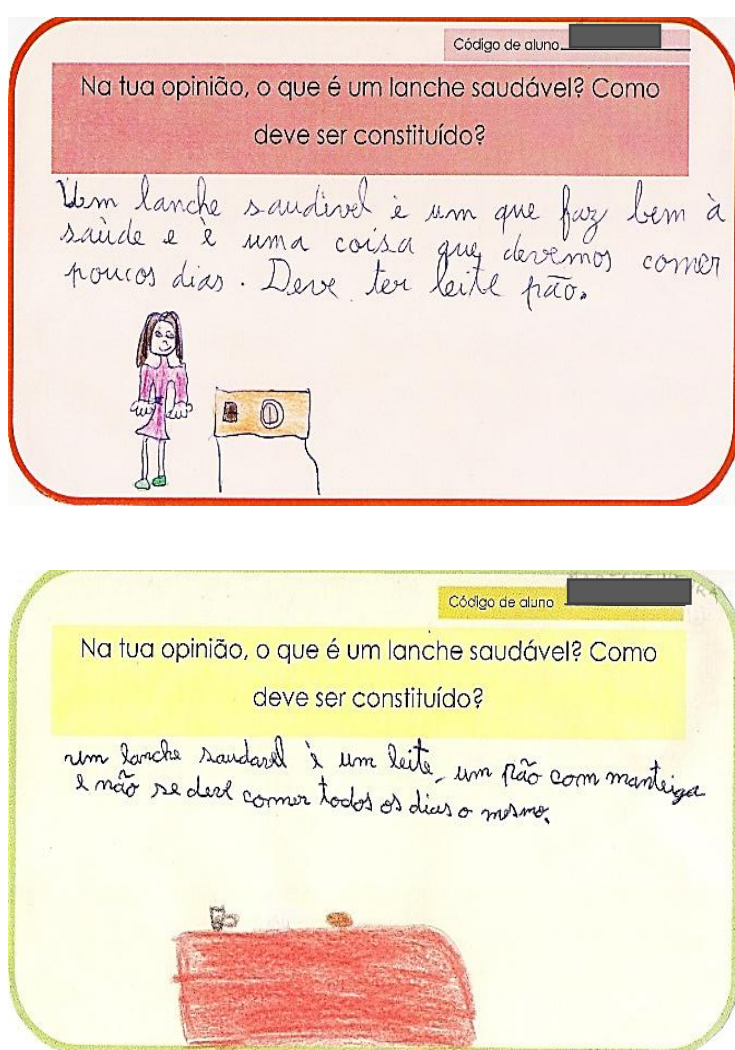 Código de aluno
Na tua opinião, o que é um lanche saudável? Como
deve ser constituído?
Um lanche saudivel è um que faz bem à
saùde e è uma coisa que devemos comer
poucos dias. Deve ter leite pão.
Código de aluno
Na tua opinião, o que é um lanche saudável? Como
deve ser constituído?
um lanche saudavel è um leite, um pão com manteiga
e não se deve comer todos os dias o mesmo.